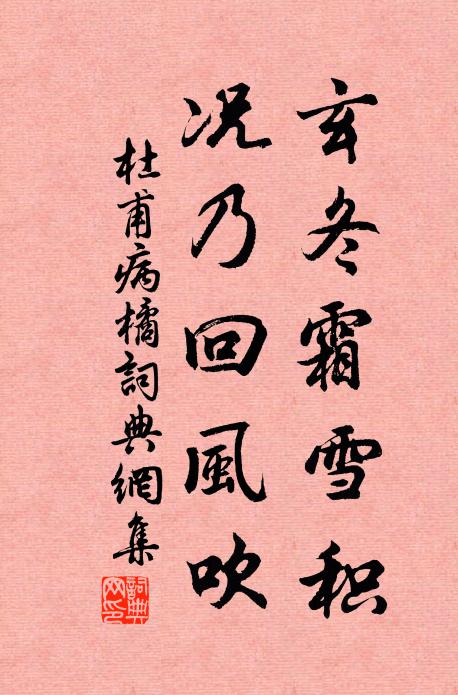 玄冬霜雪积
况乃回風吹
杜甫病橘詞典網集
詞典网印